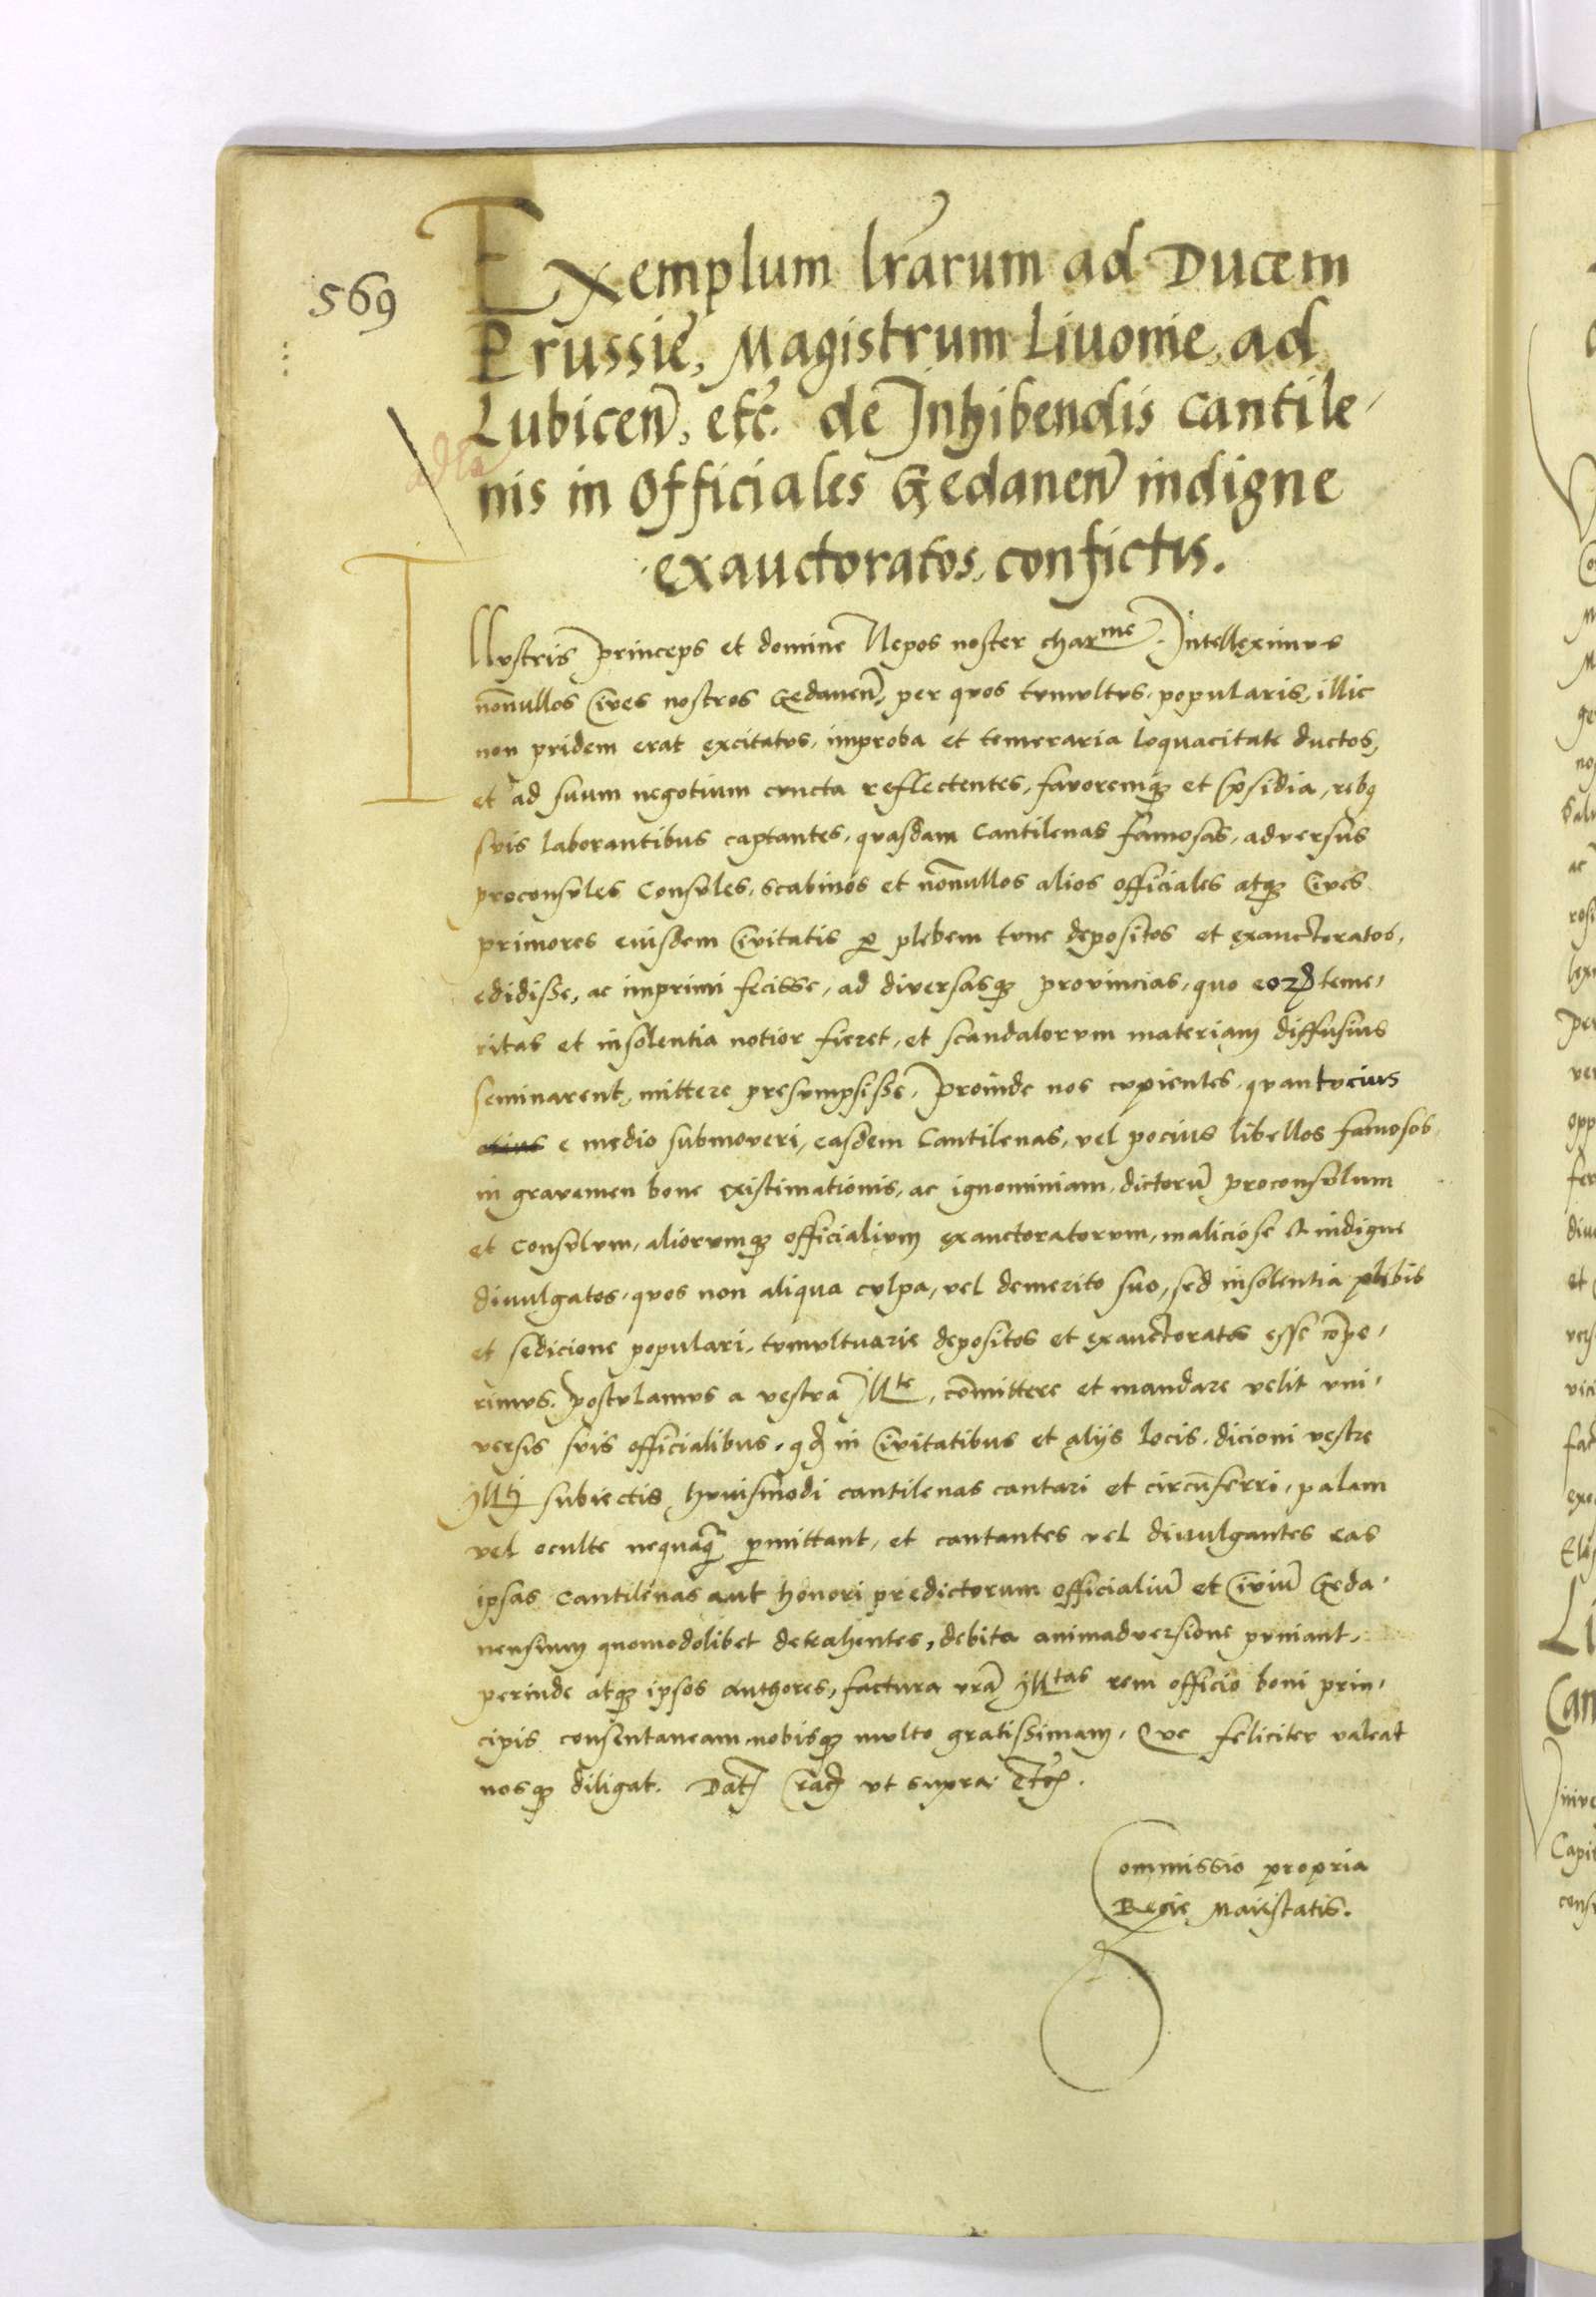 569
Exemplum lr̃arum ad Ducem
Prussie, Magistrum Livonie, ad
Lubiceñ, etc̃. de Inhibendis cantile-
nis in Officiales Gedaneñ indigne
exauctoratos, confictis.
Illustris princeps et domine Nepos noster charme. Intelleximus
nõnullos Cives nostros Gedaneñ, per quos tumultus popularis, illic
non pridem erat excitatus, improba et temeraria loquacitate ductos,
et ad suum negotium cuncta reflectentes, favoremqʒ et p̃sidia, rebqʒ
suis laborantibus captantes, quasdam Cantilenas famosas, adversus
proconsules Consules, scabinos et nõnullos alios officiales atqʒ Cives
primores eiusdem Civitatis ꝑ plebem tunc depositos et exauctoratos,
edidisse, ac imprimi fecisse, ad diversasqʒ provincias, quo eoꝝ teme-
ritas et insolentia notior fieret, et scandalorum materiam diffusius
seminarent, mittere presumpsisse, Proinde nos cupientes, quantocius
e medio submoveri, easdem Cantilenas, vel pocius libellos famosos,
in gravamen bone existimationis, ac ignominiam, dictorũ proconsulum
et Consulum, aliorumqʒ officialium exauctoratorum, maliciose & indigne
divulgatos, quos non aliqua culpa, vel demerito suo, sed insolentia plebis
et sedicione populari, tumultuarie depositos et exauctoratos esse cõpe-
rimus. Postulamus a vestra Illte, cõmittere et mandare velit uni-
versis suis officialibus, qđ in Civitatibus et alijs locis, dicioni vestre
Illti subiectis, huiusmodi cantilenas cantari et circũferri, palam
vel oculte nequaq̃ ꝑmittant, et cantantes vel divulgantes eas
ipsas Cantilenas aut honori predictorum officialiũ et Civiũ Geda-
nensium quomodolibet detrahentes, debita animadversione puniant,
perinde atqʒ ipsos Authores, factura vrã Illtas rem officio boni prin-
cipis consentaneam nobisqʒ multo gratissimam, Que feliciter valeat
nosqʒ diligat. Dat̃ Crac̃ ut supra etc̃.
Commissio propria
Regie Maiestatis.